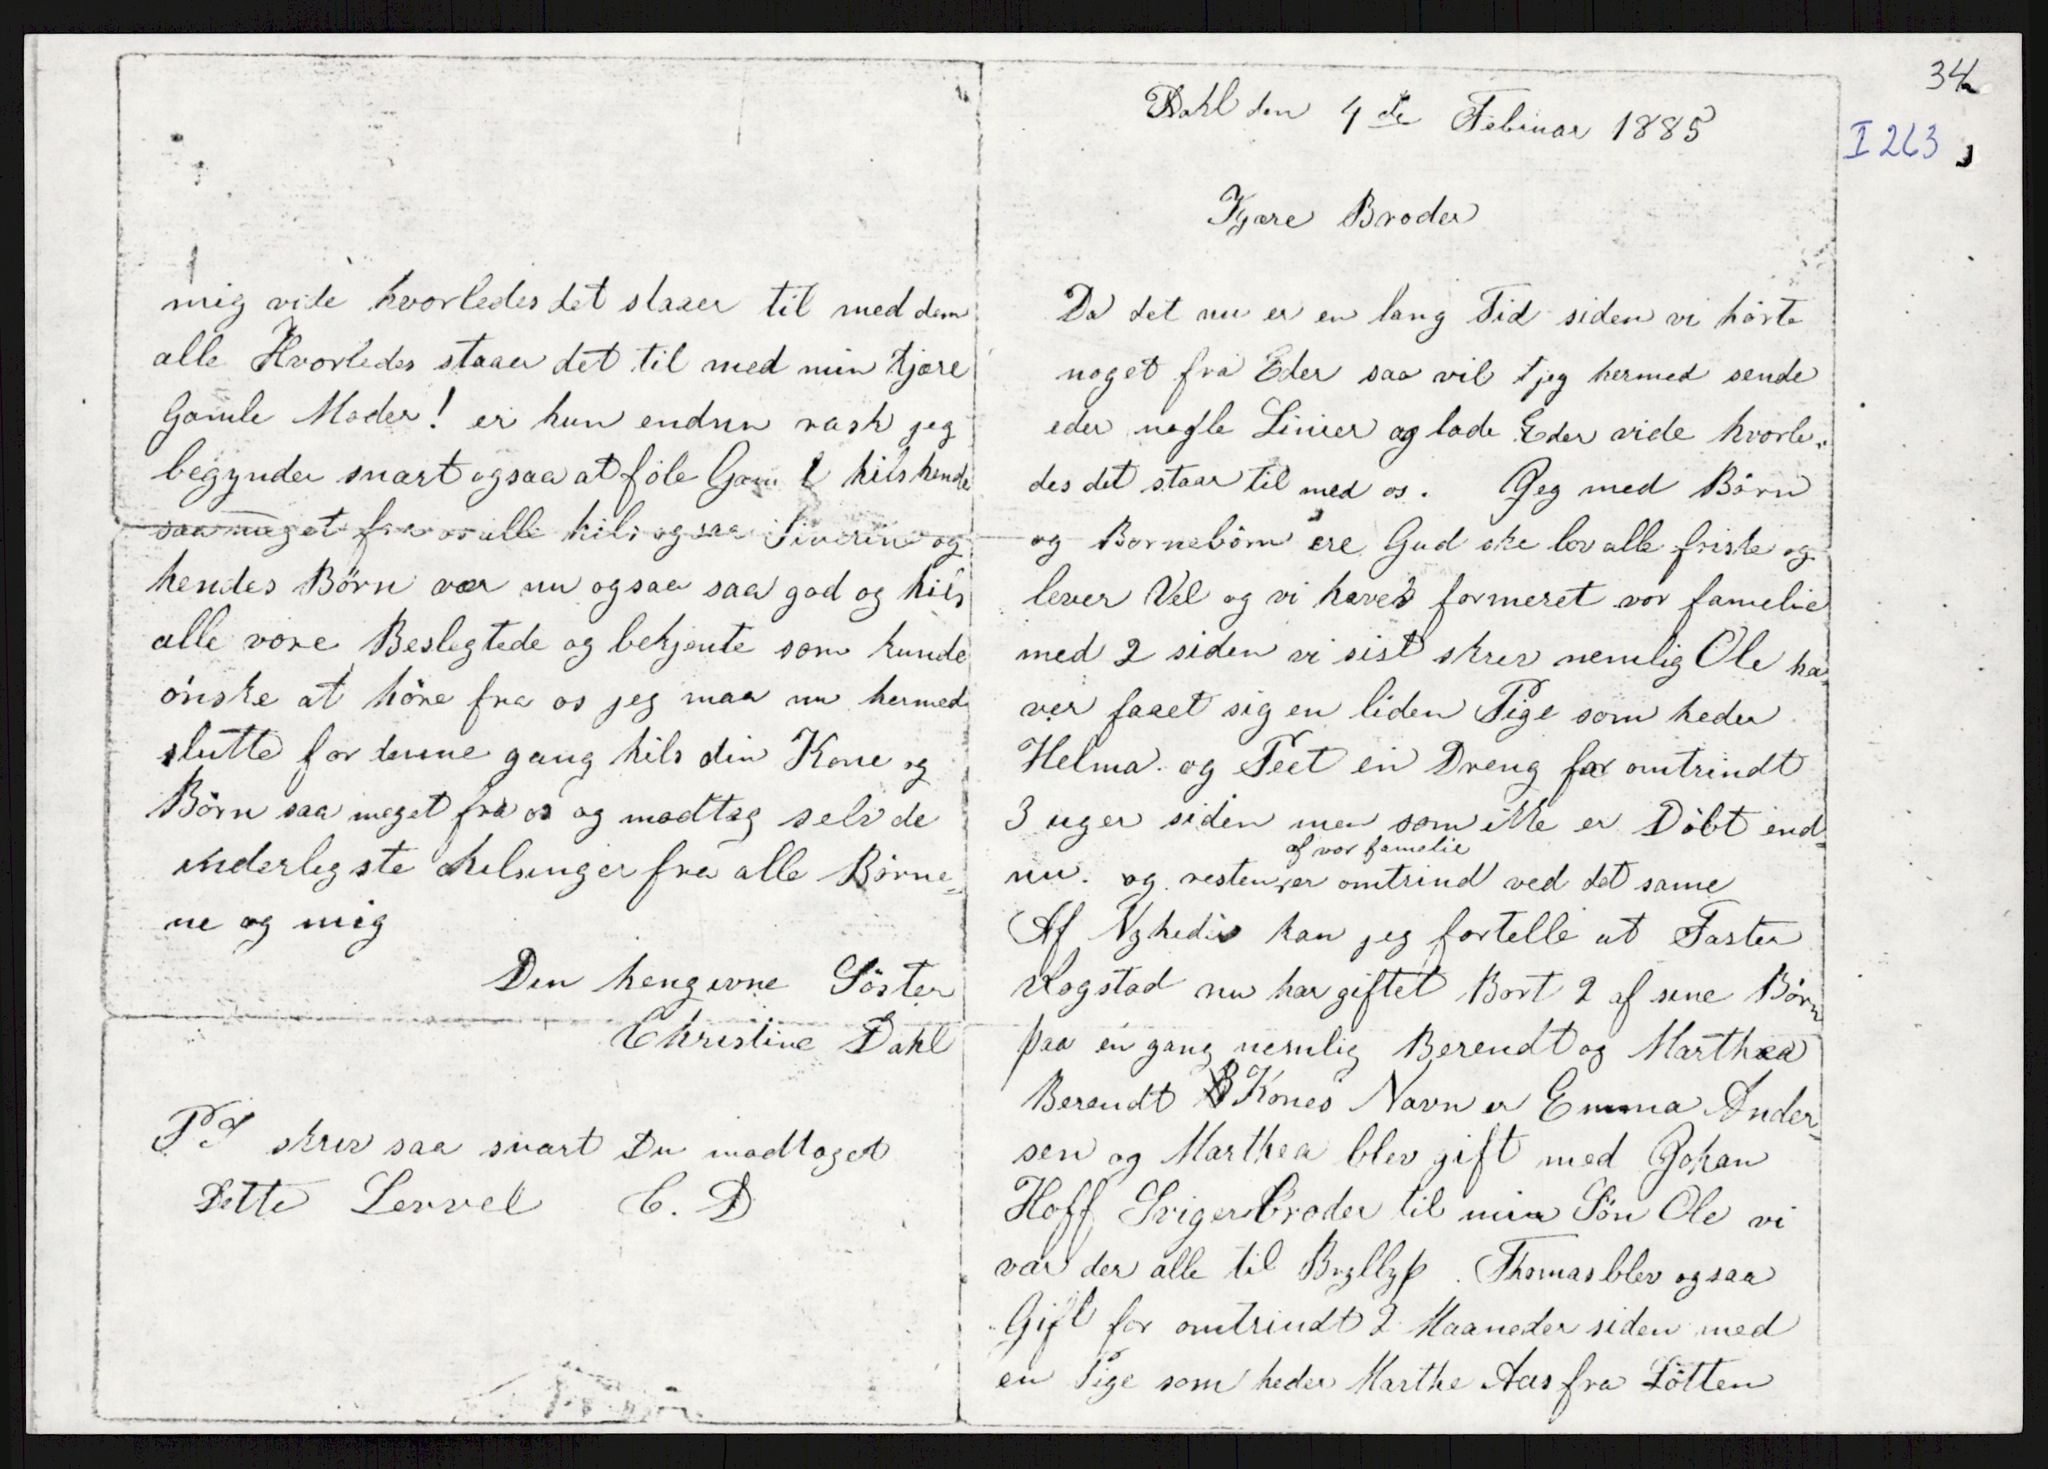 34
I 263
Dahl den 4de Februar 1885
Kjære Broder
Da det nu er en lang Tid siden vi hörte
noget fra Eder saa vil jeg hermed sende
eder nogle Linier og lade Eder vide hvorle-
des det staar til med os. Jeg med Börn
og Bornebörn ere Gud ske lov alle friske og
lever Vel og vi haver formeret vor famelie
med 2 siden vi sist skrev nemlig Ole ha-
ver faaet sig en liden Pige som heder
Helma. og Peet en Dreng for omtrindt
3 uger siden men som ikke er Döbt end-
af vor famelie
nu. og resten er omtrind ved det same
Af Nyheder kan jeg fortelle at Faster
Rogstad nu har giftet Bort 2 af sine Börn
paa en gang nemlig Berendt og Marthea
Berendt Kones Navn er Emma Ander-
sen og Marthea blev gift med Johan
Hoff Svigerbroder til min Sön Ole vi
var der alle til Bryllyp. Thomas blev ogsaa
Gift for omtrindt 2 Maaneder siden med
en Pige som heder Marthe Aas fra Lötten
mig vide hvorledes det staaer til med dem
alle Hvorledes staaer det til med min kjære
Gamle Moder! er hun endnu rask jeg
begynder snart ogsaa at föle Gam l hils hende
saa meget fra os alle hils ogsaa Siverine og
hendes Börn vær nu ogsaa saa god og hils
alle vore Beslegtede og bekjente som kunde
önske at höre fra os jeg maa nu hermed
slutte for denne gang hils din Kone og
Börn saa meget fra os og modtag selv de
inderligste hilsinger fra alle Börne-
ne og mig
Den hengivne Söster
Christine Dahl
PS skriv saa snart Du modtaget
Dette Lervel C. D